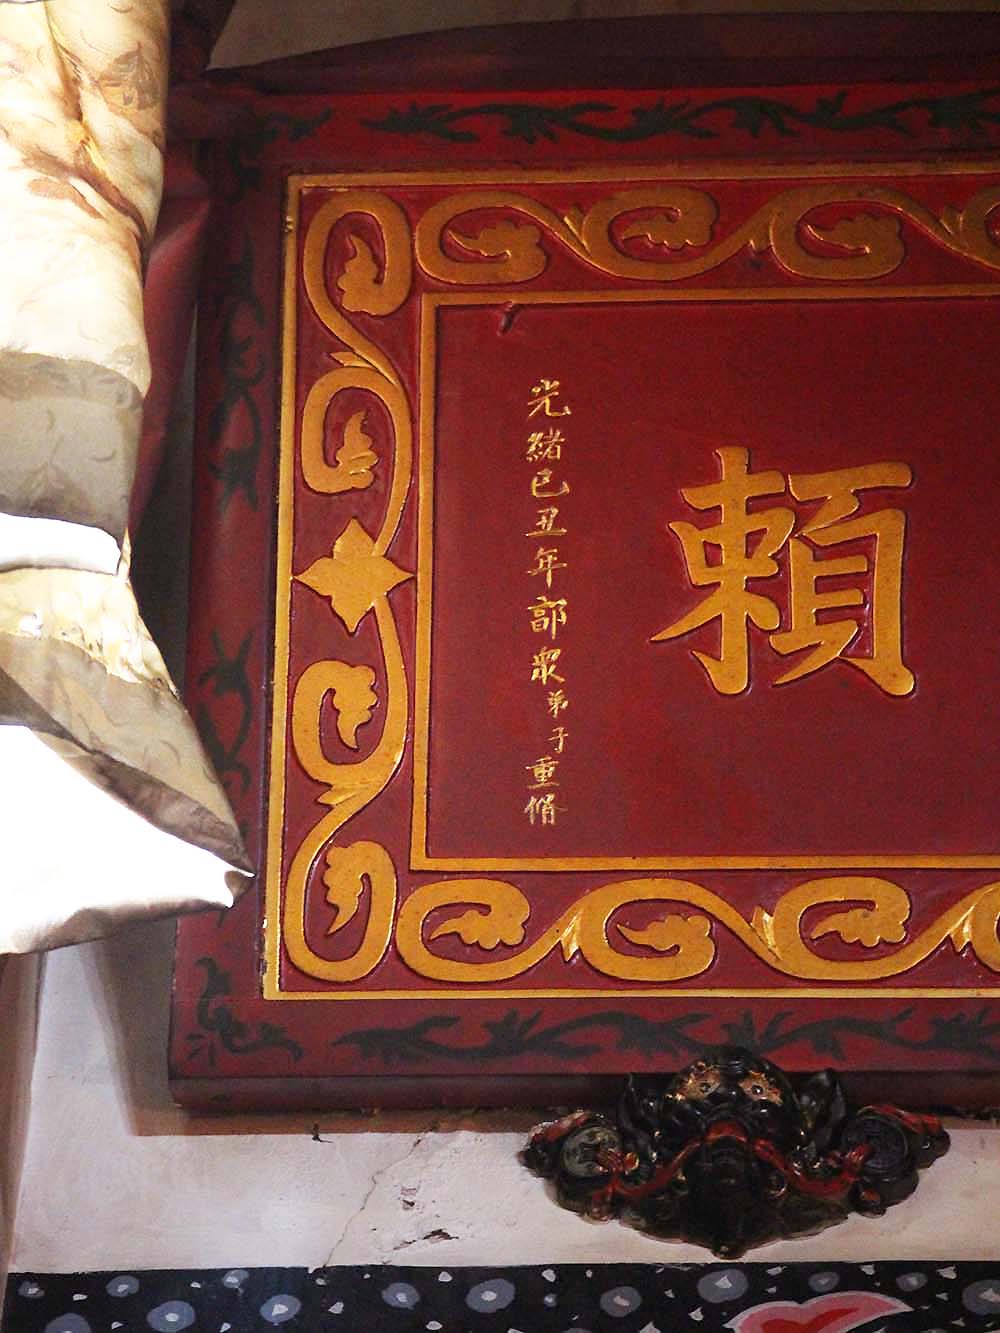 賴
光緒己丑年部衆弟子重脩